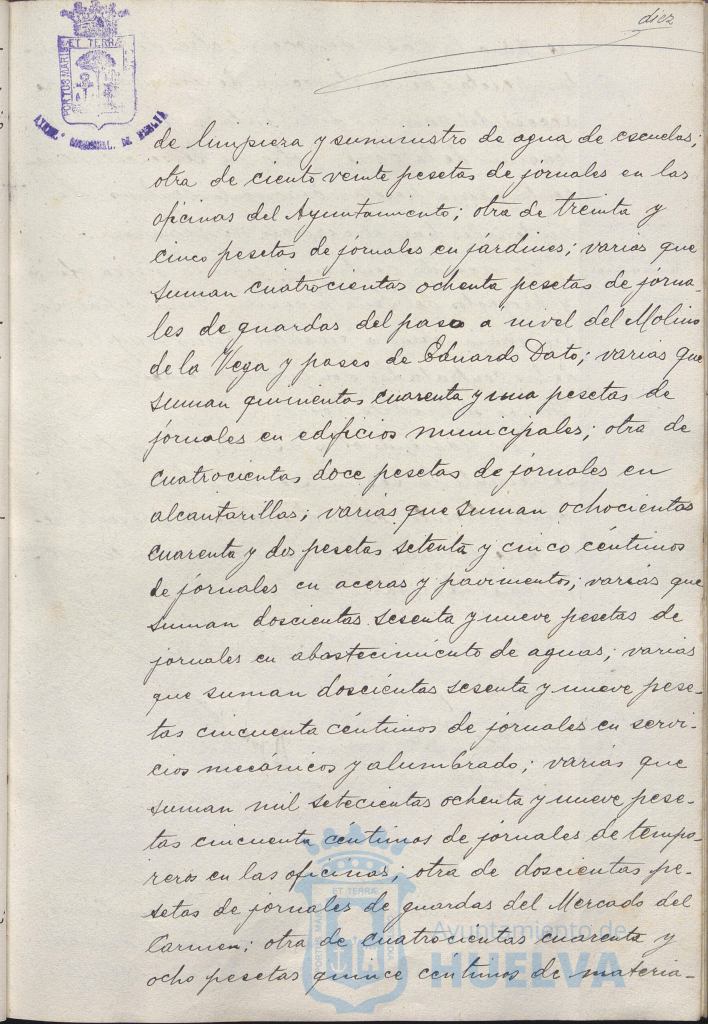 diez
PORTUS MARIS
ET TERRÆ
AYUNT.º CONSTITUCIONAL. DE HUELVA
de limpieza y suministro de agua de escuelas;
otra de ciento veinte pesetas de jornales en las
oficinas del Ayuntamiento; otra de treinta y
cinco pesetas de jornales en jardines; varias que
suman cuatrocientas ochenta pesetas de jorna-
les de guardas del paso a nivel del Molino
de la Vega y paseo de Eduardo Dato; varias que
suman quinientas cuarenta y una pesetas de
jornales en edificios municipales; otra de
cuatrocientas doce pesetas de jornales en
alcantarillas; varias que suman ochocientas
cuarenta y dos pesetas setenta y cinco céntimos
de jornales en aceras y pavimentos; varias que
suman doscientas sesenta y nueve pesetas de
jornales en abastecimiento de aguas; varias
que suman doscientas sesenta y nueve pese-
tas cincuenta céntimos de jornales en servi-
cios mecánicos y alumbrado; varias que
suman mil setecientas ochenta y nueve pese-
tas cincuenta céntimos de jornales de tempo-
reros en las oficinas; otra de doscientas pe-
setas de jornales de guardas del Mercado del
Carmen; otra de cuatrocientas cuarenta y
ocho pesetas quince céntimos de materia-
ET TERRÆ
PORTUS MARIS
Ayuntamiento de
HUELVA